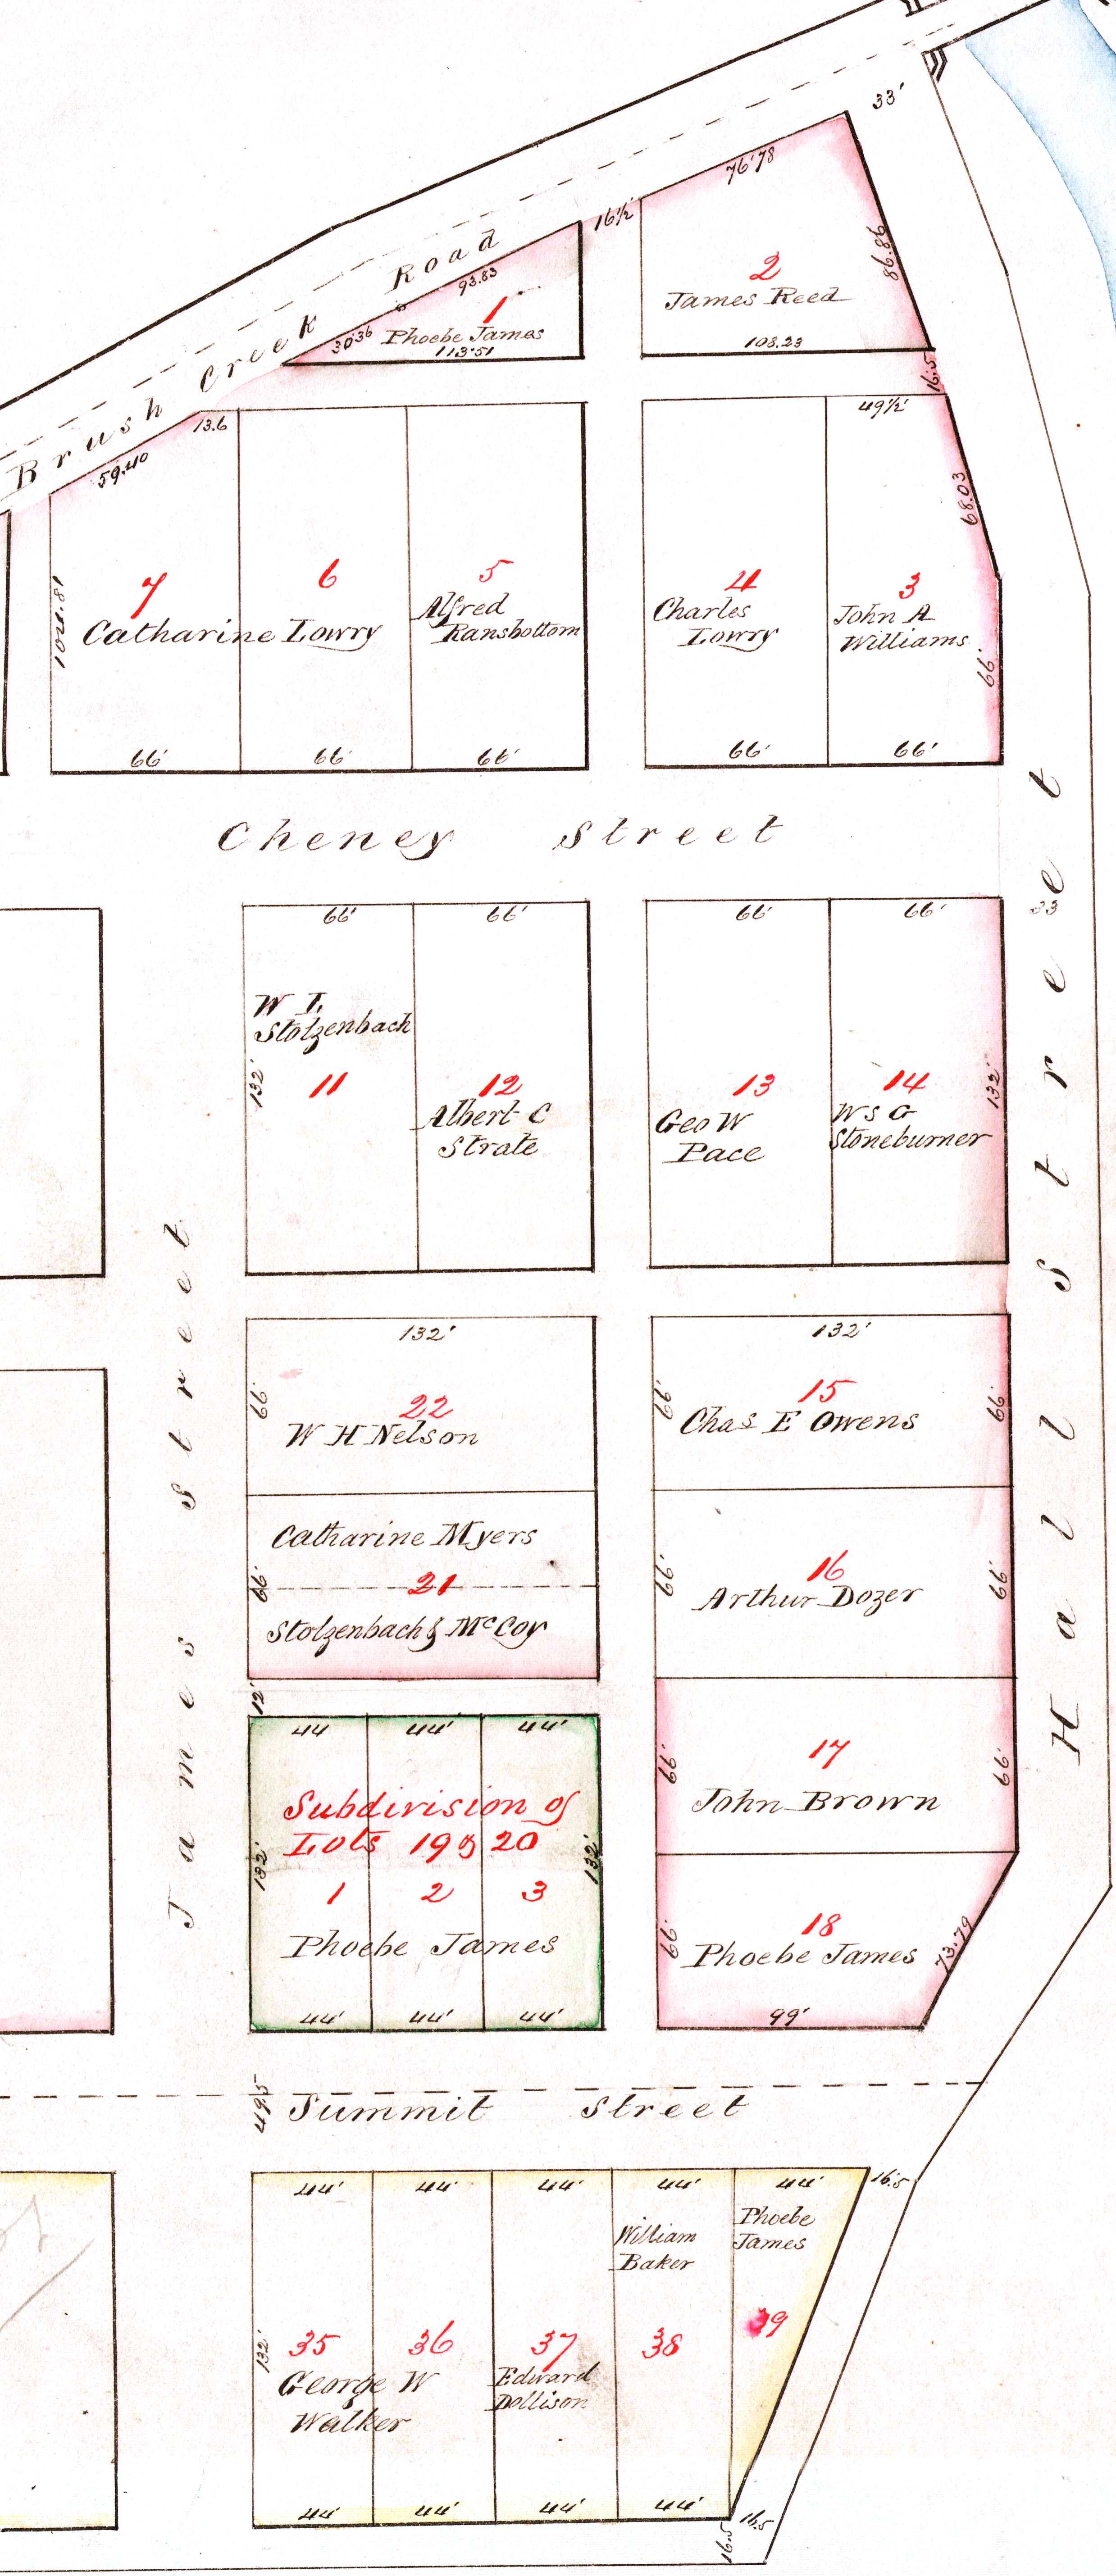 33'
76'78
16½'
Brush Creek Road
93.83
30'36
1
Phoebe James
113'51
2
James Reed
86.86
108.23
16.5
13.6
59.40
49½'
68.03
104.81
7
6
Catharine Lowry
5
Alfred
Ransbottom
4
Charles
Lowry
3
John A
Williams
66'
66'
66'
66'
66'
66'
Cheney Street
66'
66'
66'
66'
33
W L
Stolzenbach
132'
11
12
Albert C
Strate
13
Geo W
Pace
14
W S G
Stoneburner
132'
James Street
Hall Street
132'
66'
22
W H Nelson
132'
66'
15
Chas E Owens
66'
Catharine Myers
66'
21
Stolzenbach & McCoy
66'
16
Arthur Dozer
66'
12'
44
44'
44'
Subdivision of
Lots 19 & 20
132'
132'
1
2
3
Phoebe James
44'
44'
44'
66'
17
John Brown
66'
66'
18
Phoebe James
73.79
99'
49.5
Summit Street
44'
44'
44'
44'
44'
16.5
Phoebe
James
William
Baker
39
132'
35
36
George W
Walker
37
Edward
Dollison
38
44'
44'
44'
44'
16.5
16.5